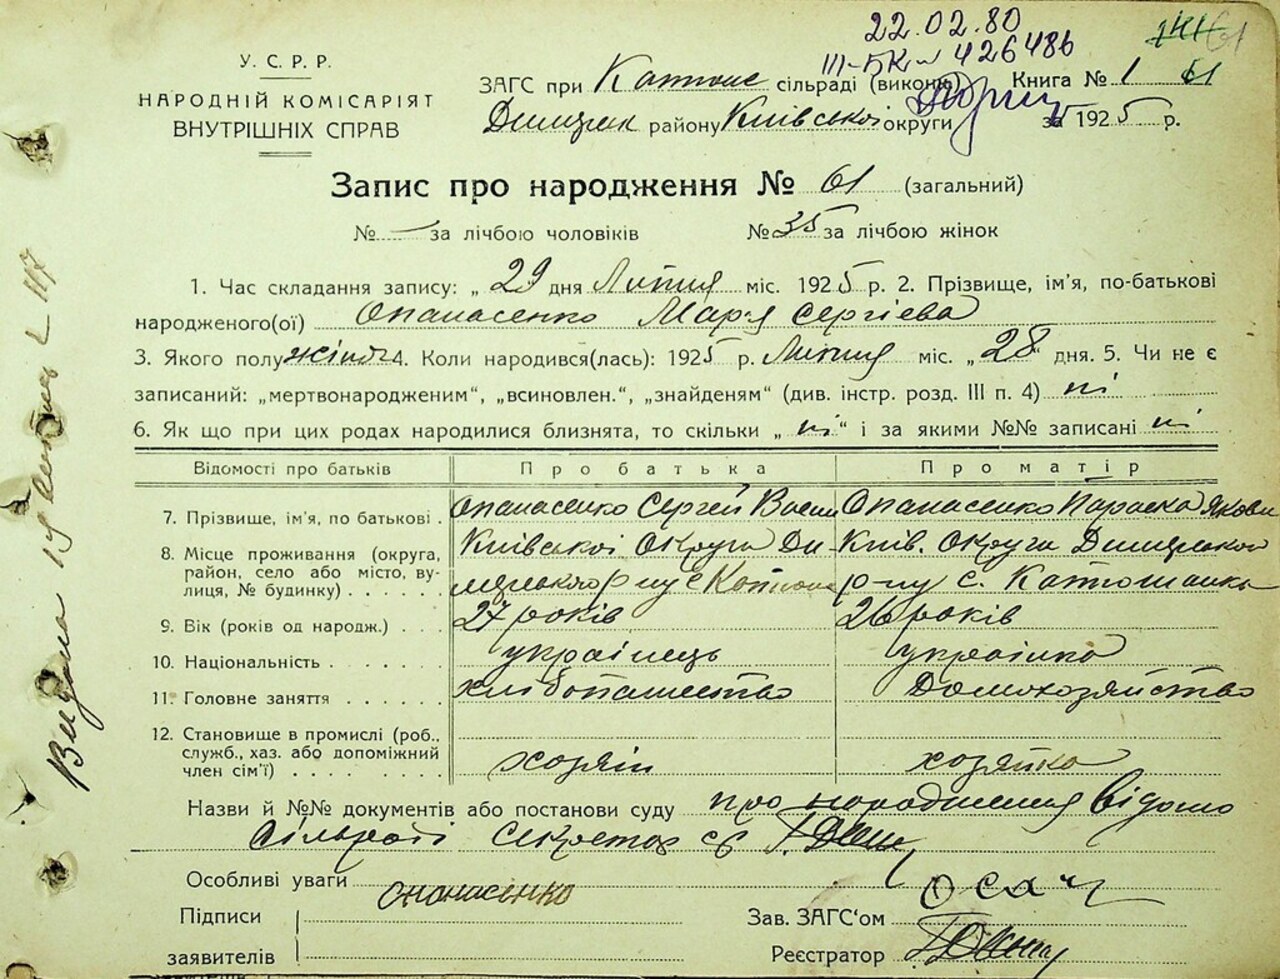 22.02.80
III-БК № 426486
У. С. Р. Р.
НАРОДНІЙ КОМІСАРІЯТ
ВНУТРІШНІХ СПРАВ
ЗАГС при Катюж сільраді (викон Книга № 1 61
Димерськ району Київської округи за 1925 р.
Запис про народження № 61 (загальний)
№ — за лічбою чоловіків № 35 за лічбою жінок
1. Час складання запису: „ 29 дня Липня міс. 1925 р. 2. Прізвище, ім'я, по-батькові
народженого(ої) Опанасенко Мар'я Сергієва
3. Якого полу жіноч 4. Коли народився(лась): 1925 р. Липня міс. „28“ дня. 5. Чи не є
записаний: „мертвонародженим“, „всиновлен.“, „знайденям“ (див. інстр. розд. III п. 4) ні
6. Як що при цих родах народилися близнята, то скільки „ ні “ і за якими №№ записані ні
Відомості про батьків Про батька Про матір
7. Прізвище, ім'я, по батькові . Опанасенко Сергей Васил Опанасенко Параска Яковл
8. Місце проживання (округа, Київської Округи Ди- Київ. Округа Димерського
район, село або місто, ву- мерського р-ну с Катюж р-ну с. Катюжанка
лиця, № будинку) . . . . . .
9. Вік (років од народж.) . . . 27 років 26 років
10. Національність . . . . . . . українець українка
11. Головне заняття . . . . . . хлібопашество Домохозяйство
12. Становище в промислі (роб.,
служб., хаз. або допоміжний хозяїн хозяйка
член сім'ї) . . . . . . . . .
Назви й №№ документів або постанови суду про народження відомо
Сільраді Секретар с/р
Особливі уваги
Підписи Опанасенко Зав. ЗАГС'ом
заявителів Реєстратор
Видана